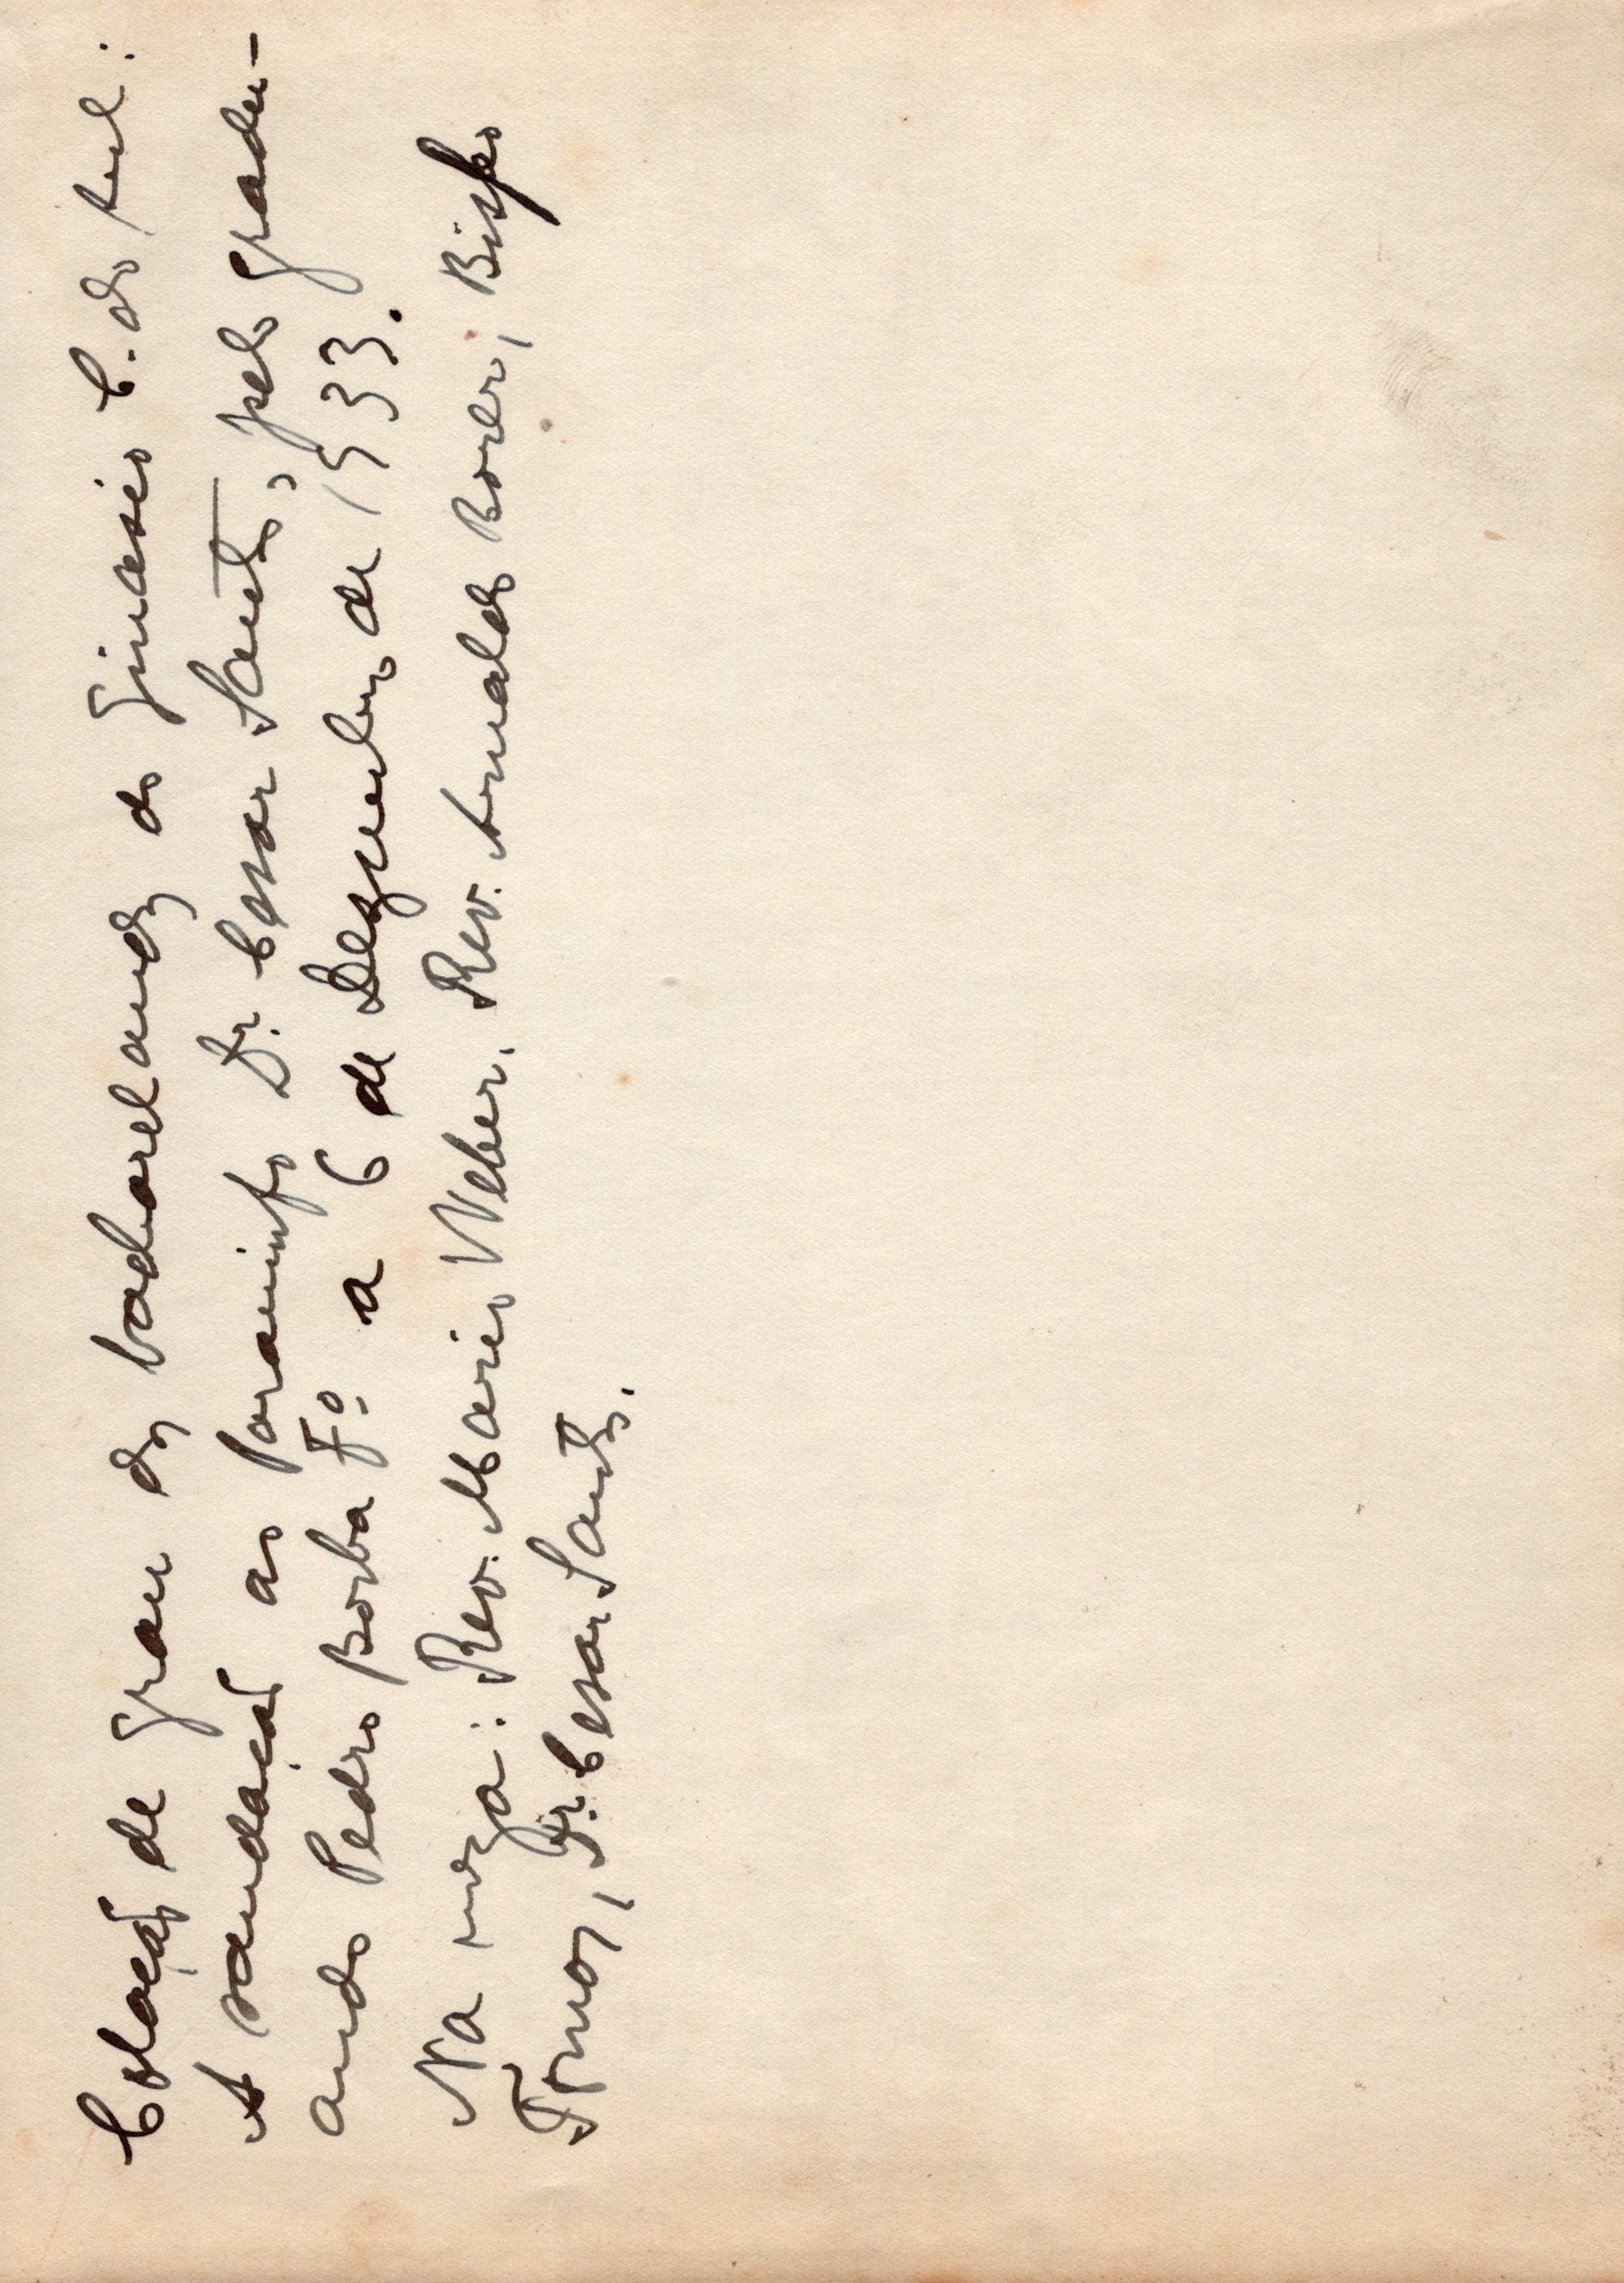 Colação de grau dos bacharelandos do Ginasio C. do Sul:
A saudação ao paraninfo Dr. Cesar Santos, pelo gradu-
ando Pedro Borba Fº a 6 de Dezembro de 1933.
Na meza: Rev. Mario Weber, Rev. Arnaldo Borer, Bispo
Dr. Cesar Santos.